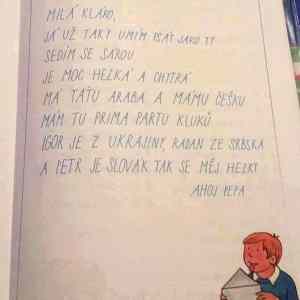 MILÁ KLÁRO,
JÁ UŽ TAKY UMÍM PSÁT JAKO TY
SEDÍM SE SÁROU
JE MOC HEZKÁ A CHYTRÁ
MÁ TÁTU ARABA A MÁMU ČEŠKU
MÁM TU PRIMA PARTU KLUKŮ
IGOR JE Z UKRAJINY, RADAN ZE SRBSKA
A PETR JE SLOVÁK. TAK SE MĚJ HEZKY
AHOJ PEPA